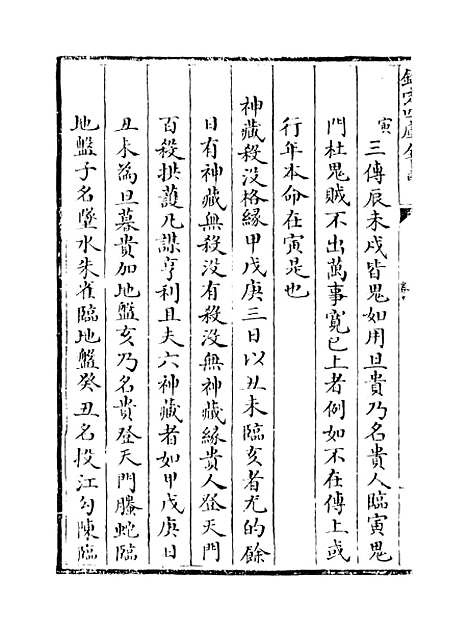 欽定四庫全書
卷十
寅三傳辰未戌皆鬼如用旦貴乃名貴人臨寅鬼
門杜鬼賊不出萬事寛已上者例如不在傳上或
行年本命在寅是也
神藏殺没格緣甲戊庚三日以丑未臨亥者尤的餘
日有神藏無殺没有殺没無神藏緣貴人登天門
百殺拱護凡謀亨利且夫六神藏者如甲戊庚日
丑未為旦暮貴加地盤亥乃名貴登天門螣蛇臨
地盤子名墜水朱雀臨地盤癸丑名投江勾陳臨